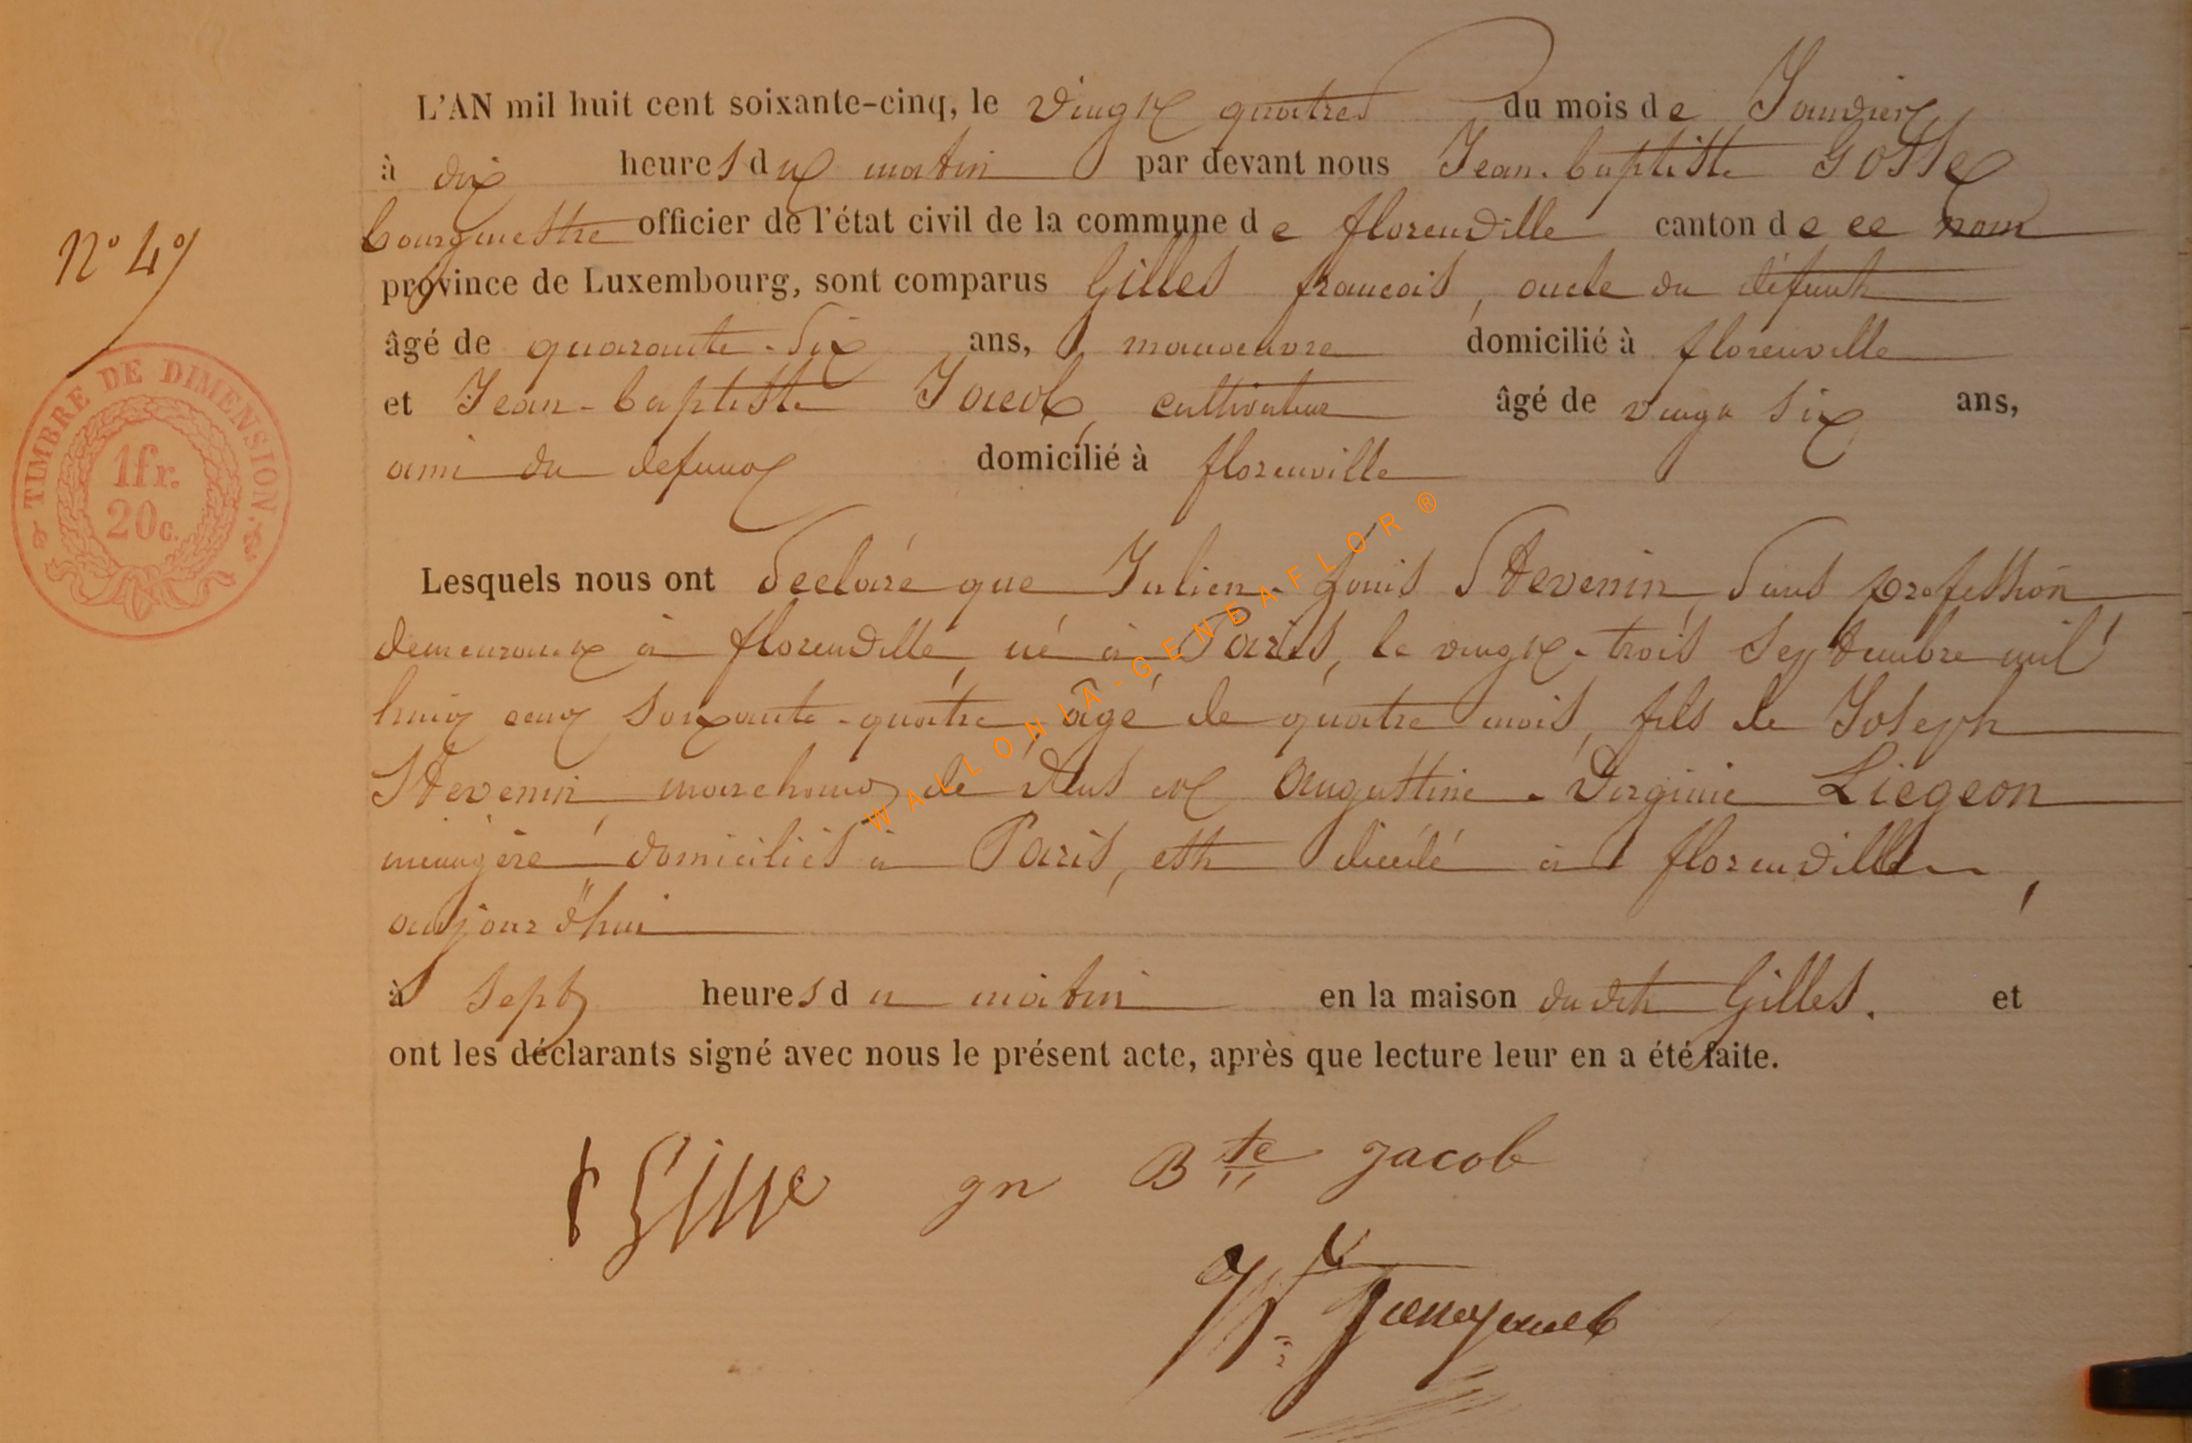 L'AN mil huit cent soixante-cinq, le vingt quatre du mois de Janvier
à dix heures du matin par devant nous Jean-baptiste Gosse
bourgmestre officier de l'état civil de la commune de florenville canton de ce nom
N° 4
province de Luxembourg, sont comparus Gilles francois, oncle du défunt
âgé de quarante-six ans, manoeuvre domicilié à florenville
et Jean-baptiste Jacob, cultivateur âgé de vingt six ans,
ami du defunt domicilié à florenville
TIMBRE DE DIMENSION.
1fr.
20c.
Lesquels nous ont declaré que Julien-Louis Stevenin, sans profession
demeurant à florenville, né à Paris, le vingt-trois Septembre mil
huit cent soixante-quatre, âgé de quatre mois, fils de Joseph
Stevenin, marchand de vins et Augustine-Virginie Liégeon
menagère, domiciliés à Paris, est décédé à florenville,
aujourd'hui
à sept heures du matin en la maison dudit Gilles. et
ont les déclarants signé avec nous le présent acte, après que lecture leur en a été faite.
f Gille jn Bte jacob
WALLONIA-GENEAFLOR®